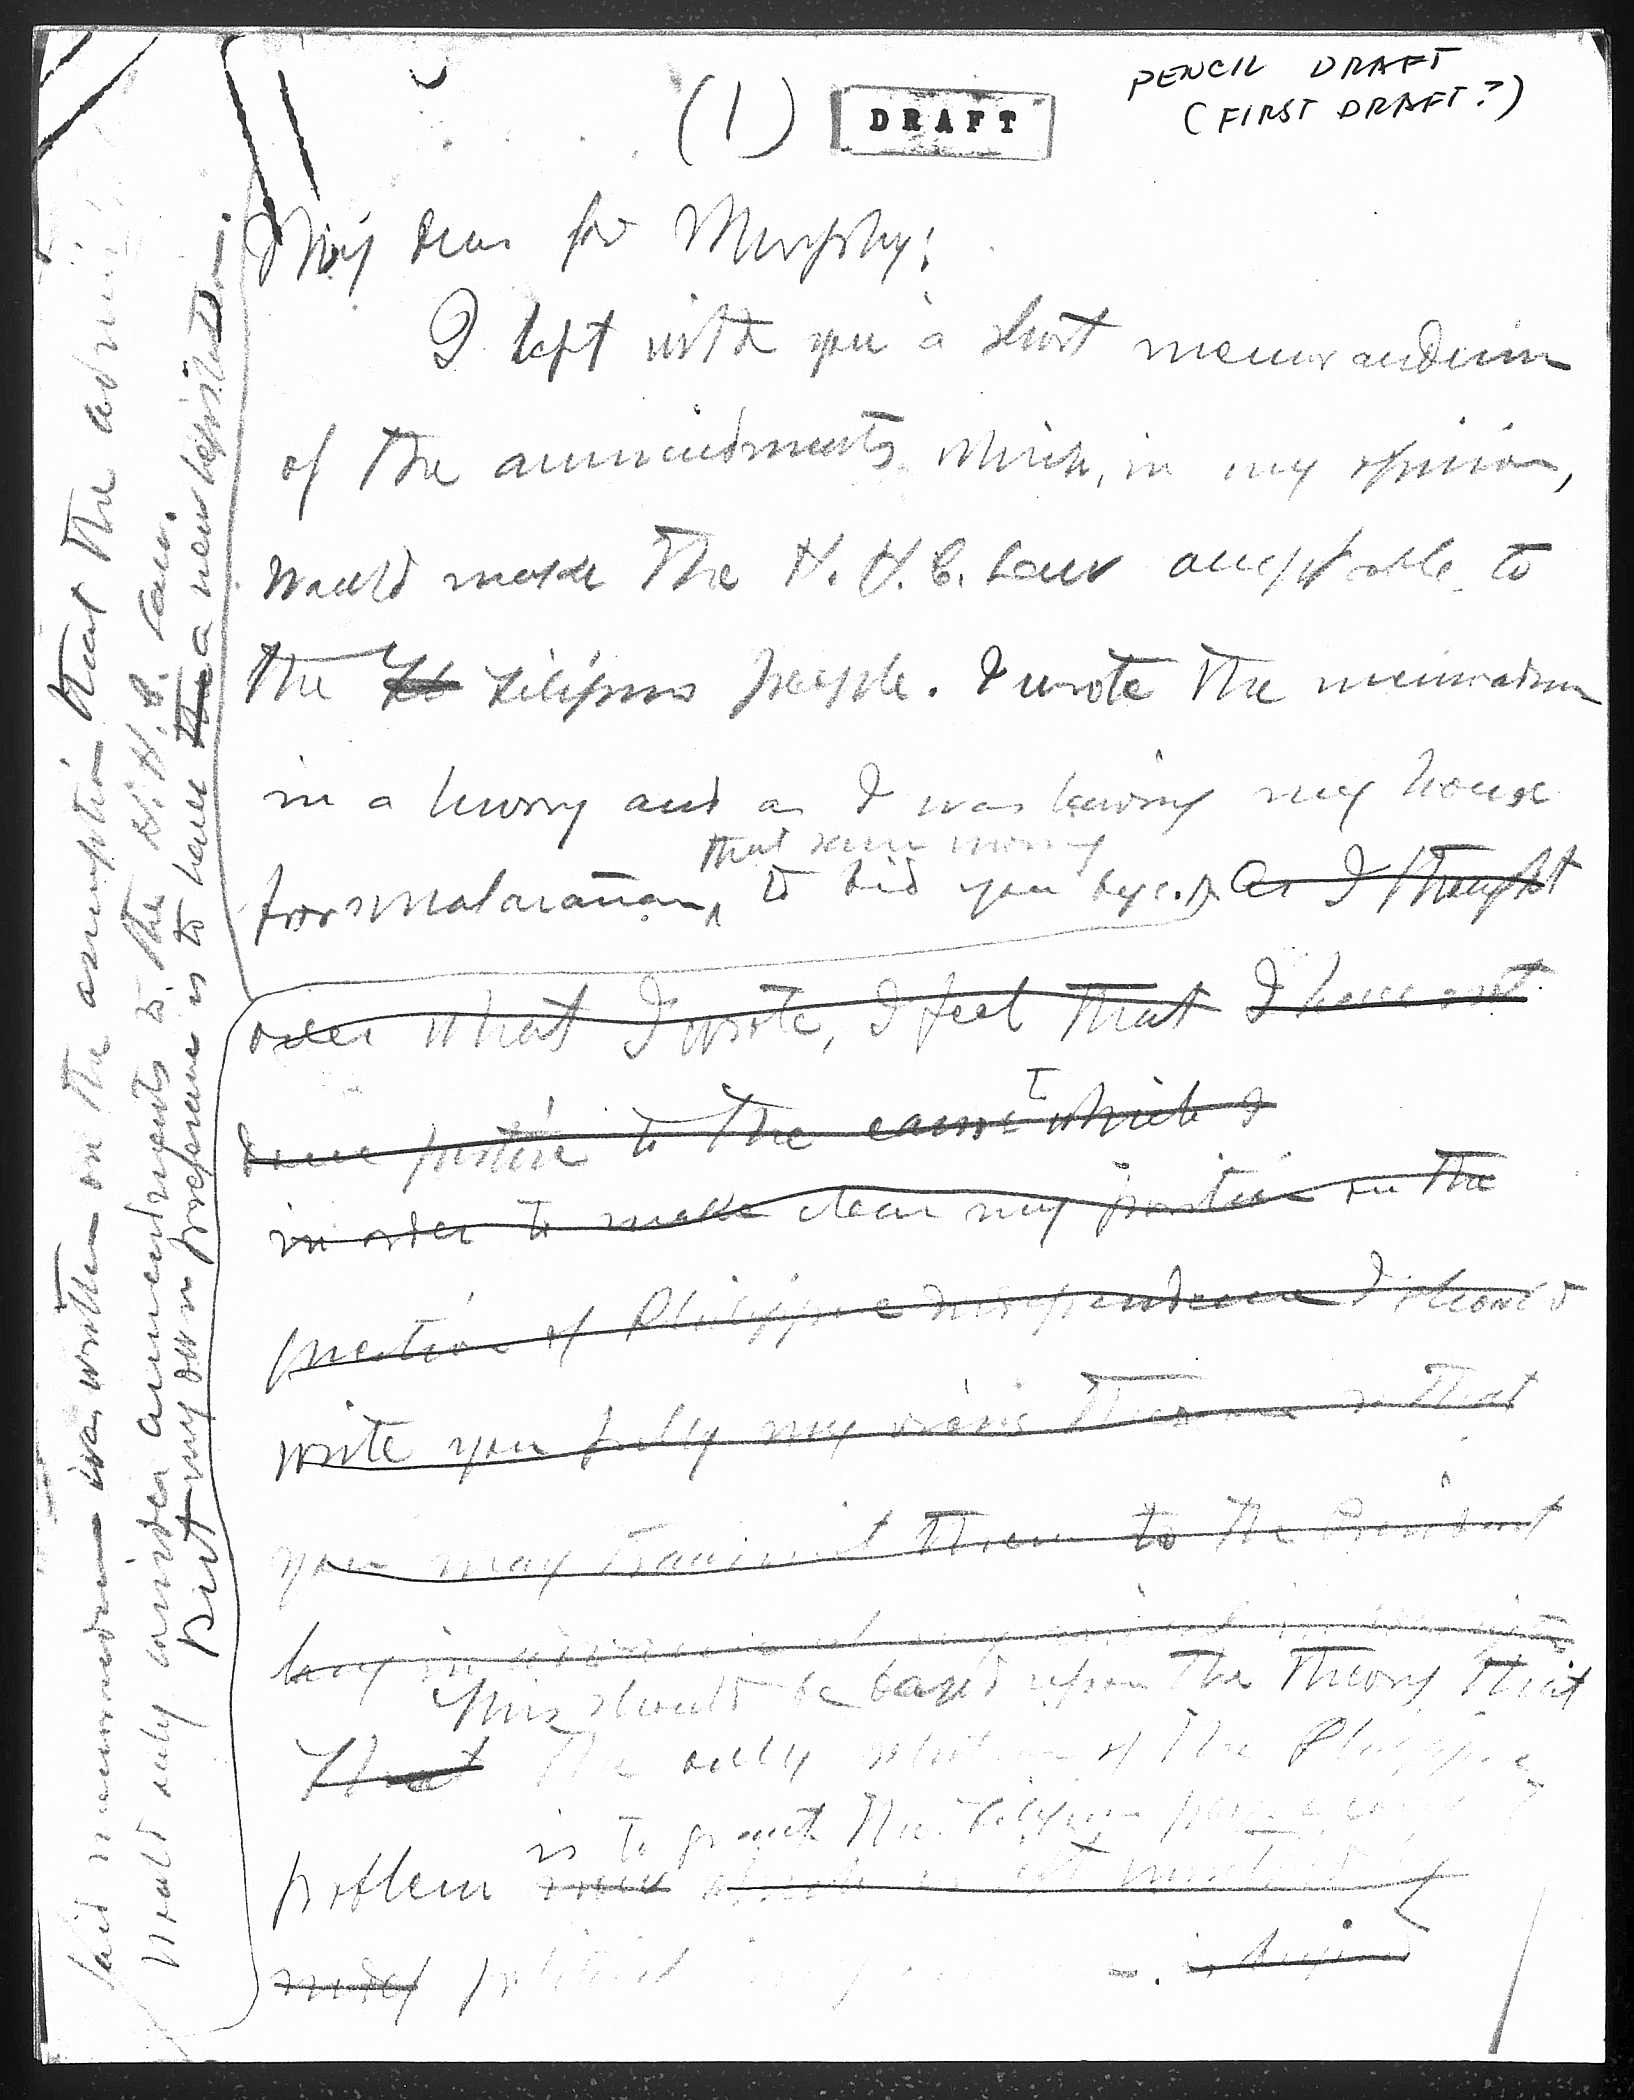 (1) DRAFT
PENCIL DRAFT
(FIRST DRAFT?)
My dear Gov Murphy:
I left with you a short memorandum
of the ammendments which, in my opinion,
would make the H. H. C. Law acceptable to
the Filipino people. I wrote the memorandum
in a hurry and as I was leaving my house
that same morning
for Malacañan, to bid you bye. As I thought
over what I wrote, I feel that I have not
done justice to the cause which I
in order to make clear my position on the
question of Philippine independence I should
write you fully my views thereon so that
you may transmit them to the President
This should be based upon the theory that
That the only solution of the Philippine
is to grant the Filipino people
problem
political
Said memorandum was written on the assumption that the
would only consider ammendments to the H. H. C. Law.
But my own preference is to have the a new legislation.